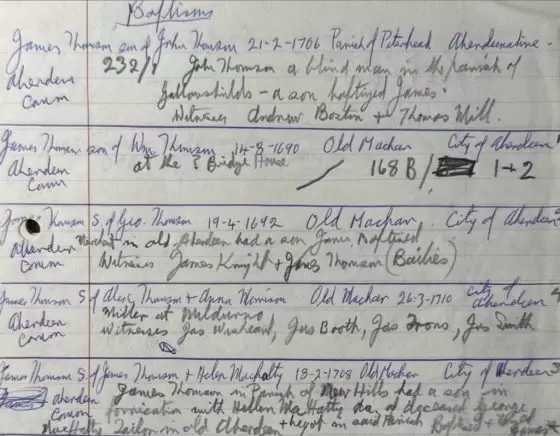 Baptisms
James Thomson son of John Thomson 21-2-1706 Parish of Peterhead Aberdeenshire.
Aberdeen 232/1 John Thomson a blind man in the parish of
comm
Gallowshields - a son baptized James.
Witnesses Andrew Bostin + Thomas Mill.
James Thomson son of Wm Thomson 14-8-1690 Old Machar City of Aberdeen
Aberdeen at the ? Bridge House
comm 168 B/ 1+2
James Thomson S. of Geo. Thomson 19-4-1692 Old Machar City of Aberdeen 2
Aberdeen Merchant in old Aberdeen had a son James Baptised
comm Witness James Knight + James Thomson (Bailies)
James Thomson S of Alexr Thomson + Anna Morrison Old Machar 26-3-1710 City of Aberdeen 4
Aberdeen Miller at
comm Witnesses Jas Jas Booth, Jas Irons, Jas Smith
James Thomson S. of James Thomson + Helen MacHatty 18-2-1708 Old Machar City of Aberdeen 3
Aberdeen James Thomson in Parish of New Hills had a son in
comm fornication with Helen MacHatty da. of deceased George
MacHatty Tailor in old Aberdeen + begot in said Parish Baptised James